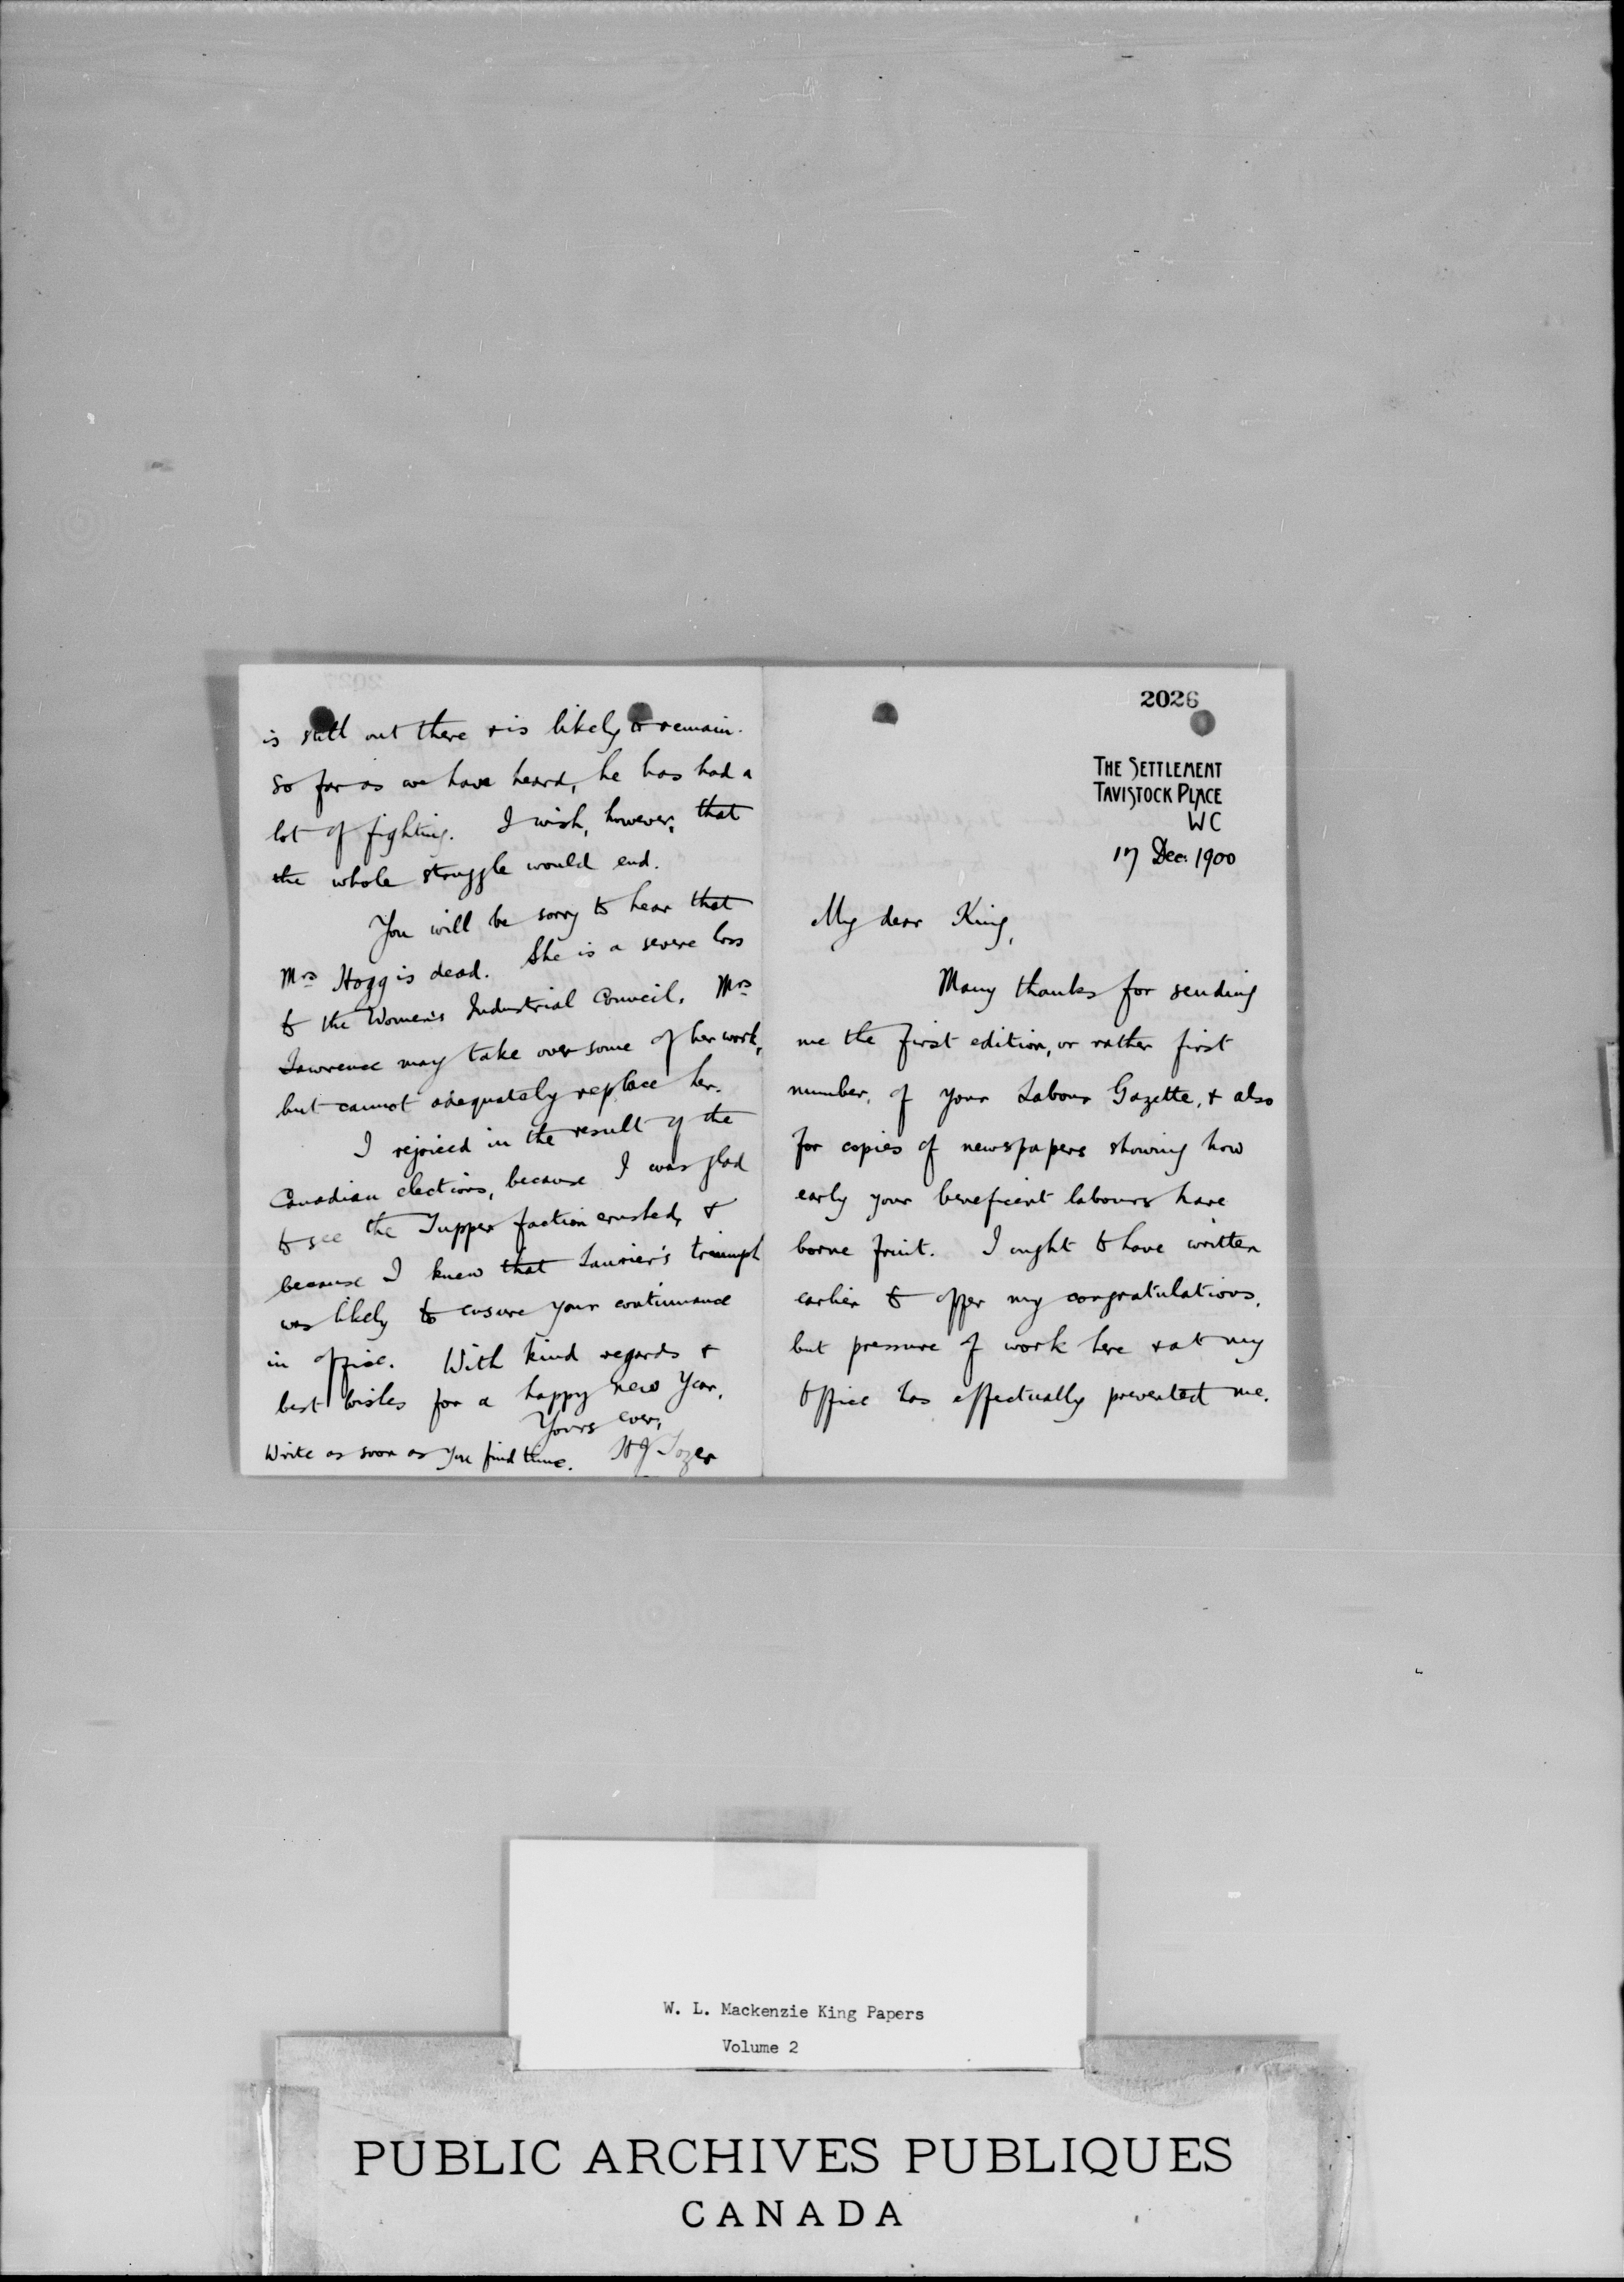 2026
THE SETTLEMENT
TAVISTOCK PLACE
WC
17 Dec. 1900
My dear King,
Many thanks for sending
me the first edition, or rather first
number, of your Labour Gazette, & also
for copies of newspapers showing how
early your beneficent labours have
borne fruit. I ought to have written
earlier to offer my congratulations,
but pressure of work here & at my
office has effectually prevented me.
is still out there & is likely to remain.
So far as we have heard, he has had a
lot of fighting. I wish, however, that
the whole struggle would end.
You will be sorry to hear that
Mrs Hogg is dead. She is a severe loss
to the Women's Industrial Council. Mrs
Lawrence may take over some of her work,
but cannot adequately replace her.
I rejoiced in the result of the
Canadian elections, because I was glad
to see the Tupper faction crushed, &
because I knew that Laurier's triumph
was likely to ensure your continuance
in office. With kind regards &
best wishes for a happy new Year,
Yours ever,
HJ Tozer
Write as soon as you find time.
W. L. Mackenzie King Papers
Volume 2
PUBLIC ARCHIVES PUBLIQUES
CANADA